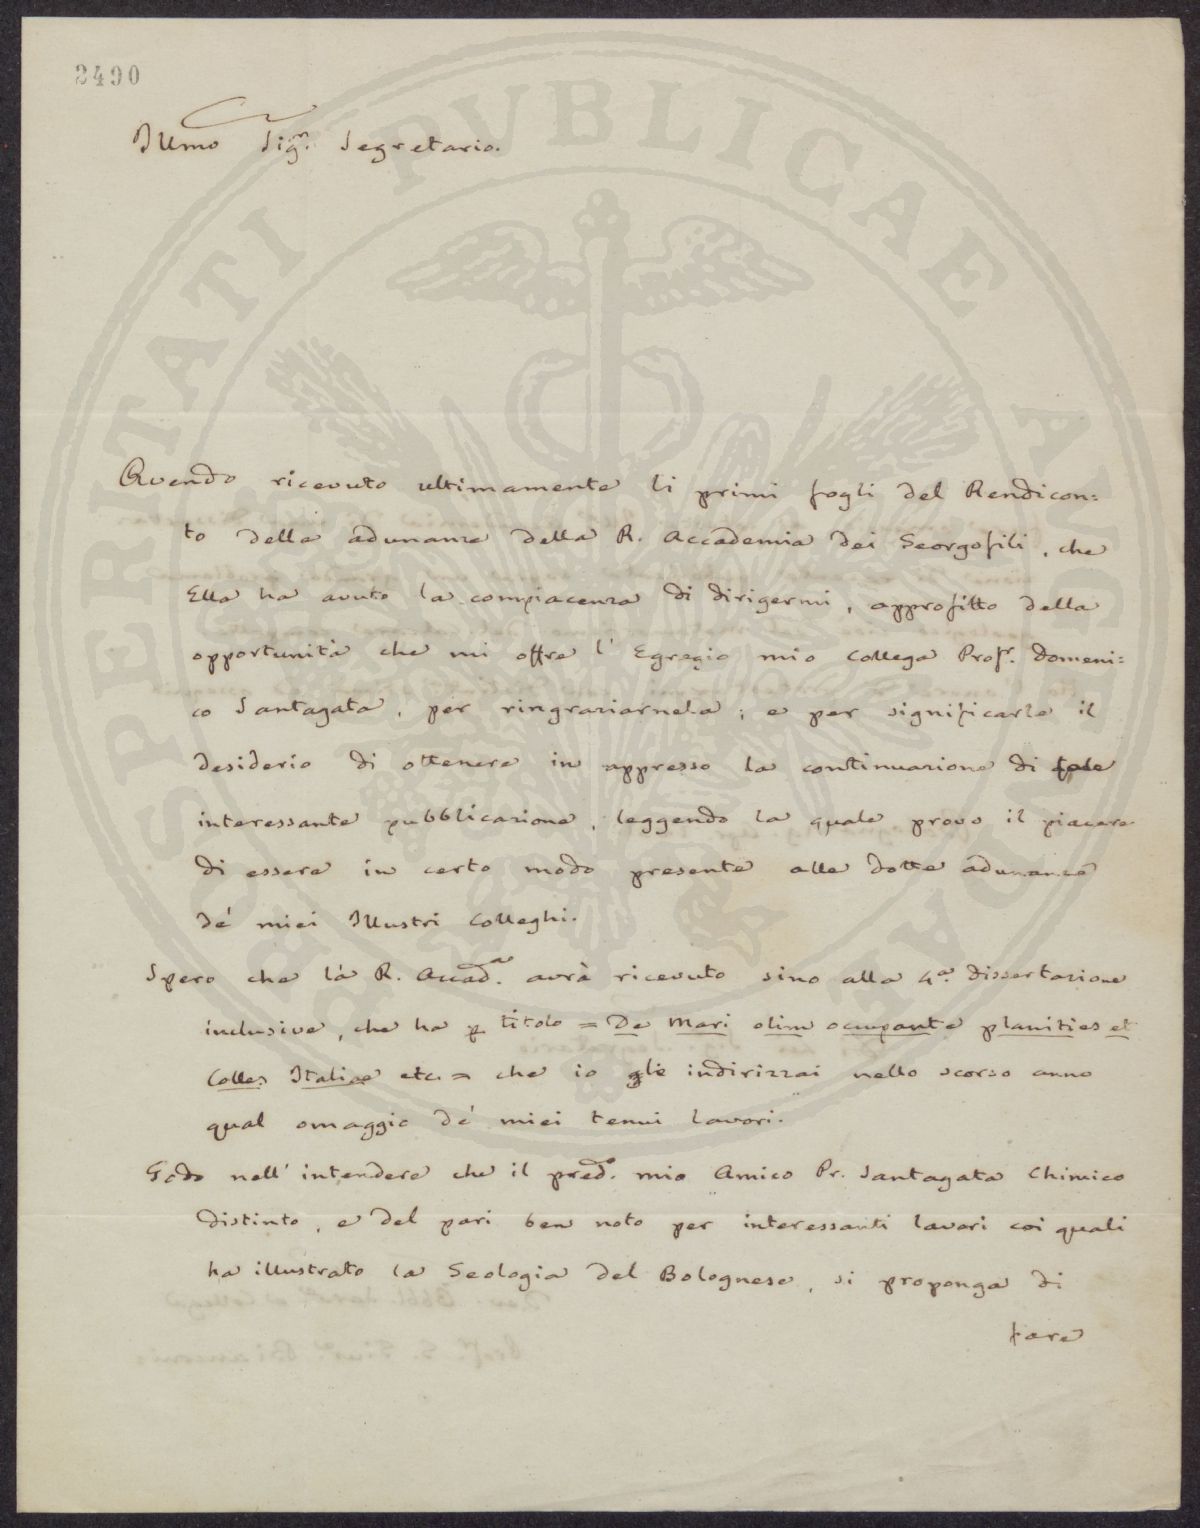 2490
Illmo Sigr. Segretario.
Avendo ricevuto ultimamente li primi fogli del Rendicon=
to delle adunanze della R. Accademia dei Georgofili, che
Ella ha avuto la compiacenza di dirigermi, approfitto della
opportunità che mi offre l' Egregio mio Collega Profr. Domeni=
co Santagata, per ringraziarnela; e per significarle il
desiderio di ottenere in appresso la continuazione di tale
interessante pubblicazione, leggendo la quale provo il piacere
di essere in certo modo presente alle dotte adunanze
de' miei Illustri Colleghi.
Spero che la R. Accada. avrà ricevuto sino alla 4a. dissertazione
inclusive, che ha p titolo = De Mari olim occupante planities et
Colles Italiae etc. = che io gli indirizzai nello scorso anno
qual omaggio de' miei tenui lavori.
Godo nell' intendere che il predo. mio Amico Pr. Santagata Chimico
distinto, e del pari ben noto per interessanti lavori coi quali
ha illustrato la Geologia del Bolognese, si proponga di
fare
PROSPERITATI PUBLICAE AUGENDAE